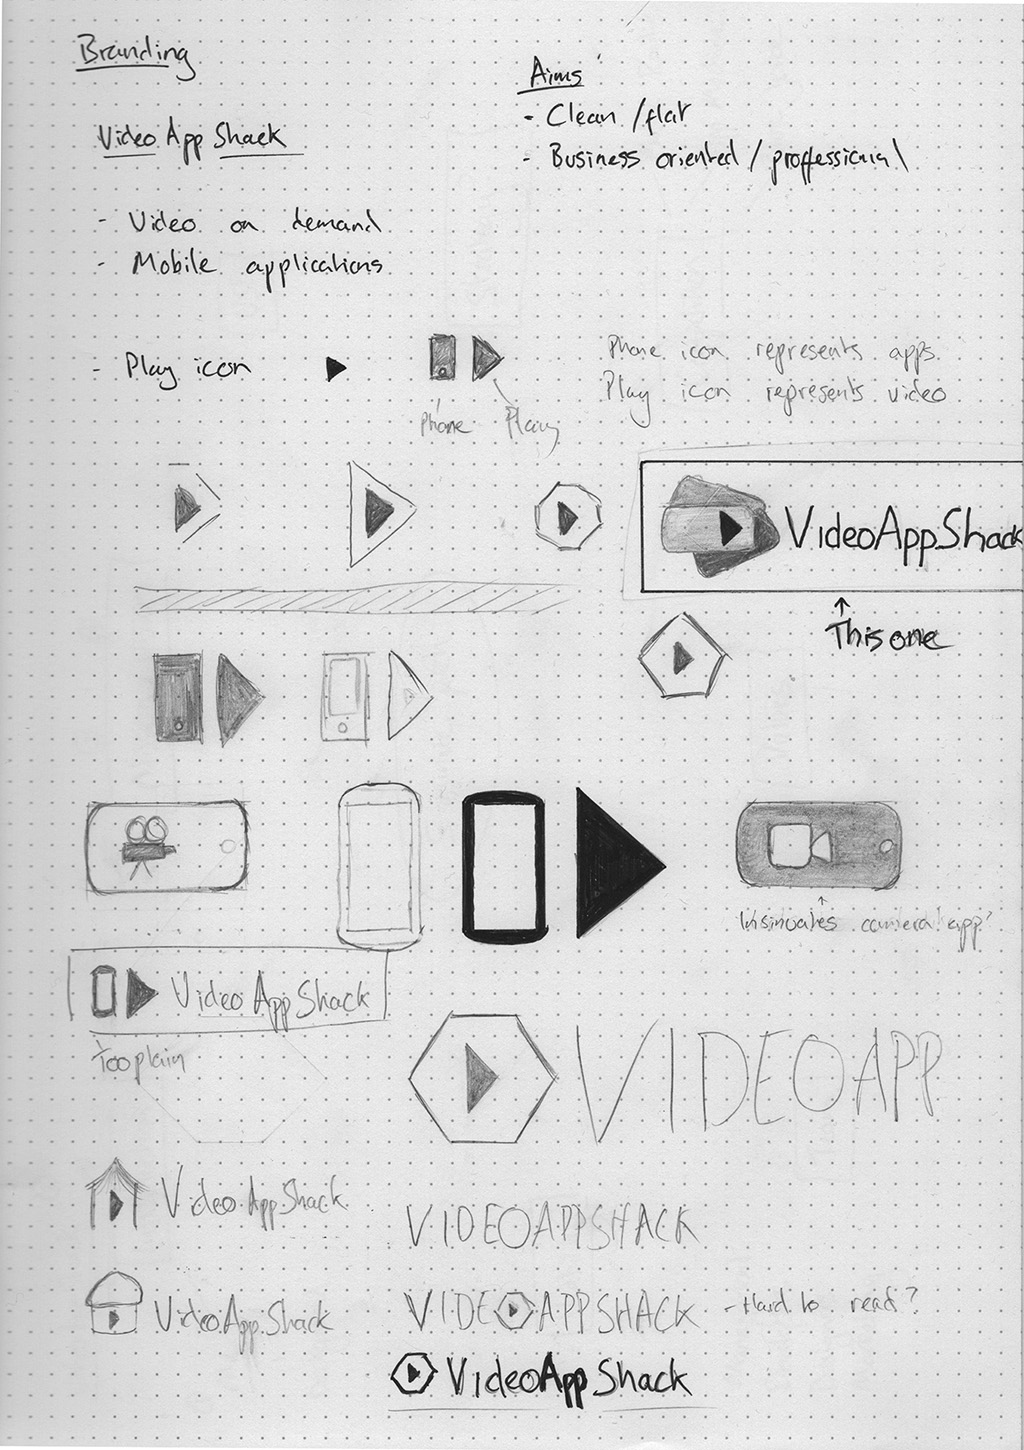 Branding
Aims
- Clean / flat
- Business oriented / proffessional
Video App Shack
- Video on demand
- Mobile applications
- Play icon
Phone
Play
Phone icon represents apps.
Play icon represents video
VideoAppShack
This one
Insinuates camera app?
VideoAppShack
too plain
VIDEOAPP
VideoAppShack
VIDEOAPPSHACK
VideoAppShack
VIDEOAPPSHACK
- Hard to read?
VideoAppShack